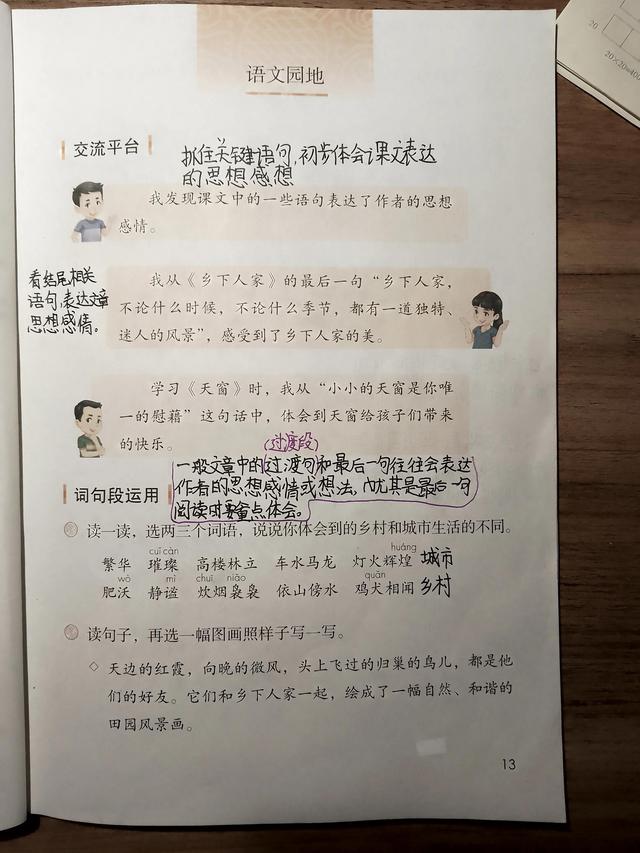 语文园地
交流平台
抓住关键语句,初步体会课文表达
的思想感想
我发现课文中的一些语句表达了作者的思想
感情。
看结尾相关
语句,表达文章
思想感情。
我从《乡下人家》的最后一句“乡下人家,
不论什么时候,不论什么季节,都有一道独特、
迷人的风景”,感受到了乡下人家的美。
学习《天窗》时,我从“小小的天窗是你唯
一的慰藉”这句话中,体会到天窗给孩子们带来
的快乐。
(过渡段)
一般文章中的过渡句和最后一句往往会表达
作者的思想感情或想法,尤其是最后一句
阅读时要重点体会。
词句段运用
读一读,选两三个词语,说说你体会到的乡村和城市生活的不同。
cuǐ càn huáng
繁华 璀璨 高楼林立 车水马龙 灯火辉煌 城市
wò mì chuī niǎo quǎn
肥沃 静谧 炊烟袅袅 依山傍水 鸡犬相闻 乡村
读句子,再选一幅图画照样子写一写。
◇ 天边的红霞,向晚的微风,头上飞过的归巢的鸟儿,都是他
们的好友。它们和乡下人家一起,绘成了一幅自然、和谐的
田园风景画。
13
20
20×20=400